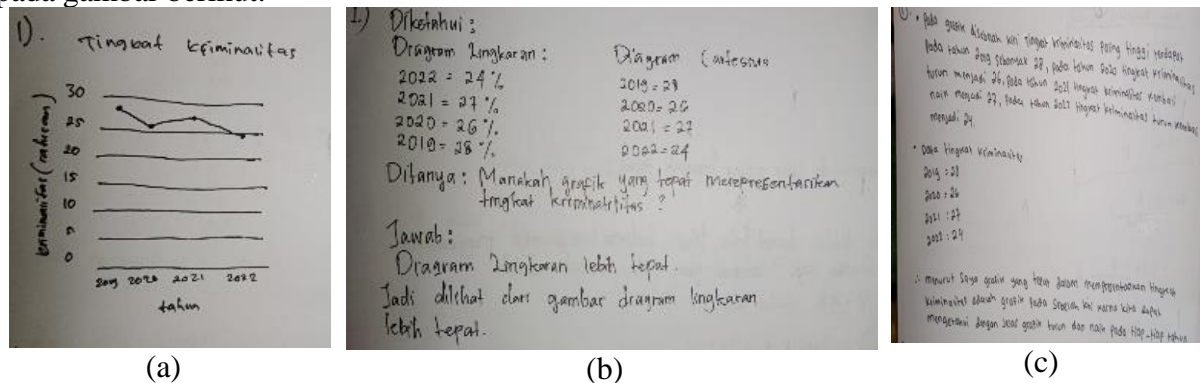 pada gambar berikut.
1).
Tingkat kriminalitas
kriminalitas (ratusan)
30
25
20
15
10
5
0
2019 2020 2021 2022
tahun
(a)
1.) Diketahui :
Diagram Lingkaran :
2022 = 24 %
2021 = 27 %
2020 = 26 %
2019 = 28 %
Diagram Cartesius
2019 = 28
2020 = 26
2021 = 27
2022 = 24
Ditanya : Manakah grafik yang tepat merepresentasikan
tingkat kriminalitas ?
Jawab :
Diagram Lingkaran lebih tepat.
Jadi dilihat dari gambar diagram lingkaran
lebih tepat.
(b)
• Pada grafik disebelah kiri tingkat kriminalitas paling tinggi terdapat
Pada tahun 2019 sebanyak 28, pada tahun 2020 tingkat kriminalitas
turun menjadi 26, Pada tahun 2021 tingkat kriminalitas kembali
naik menjadi 27, Pada tahun 2022 tingkat kriminalitas turun kembali
menjadi 24.
• Data tingkat kriminalitas
2019 : 28
2020 : 26
2021 : 27
2022 : 24
∴ menurut saya grafik yang tepat dalam
kriminalitas adalah grafik pada sebelah kiri karna kita dapat
mengetahui dengan jelas grafik turun dan naik pada tiap-tiap tahun
(c)